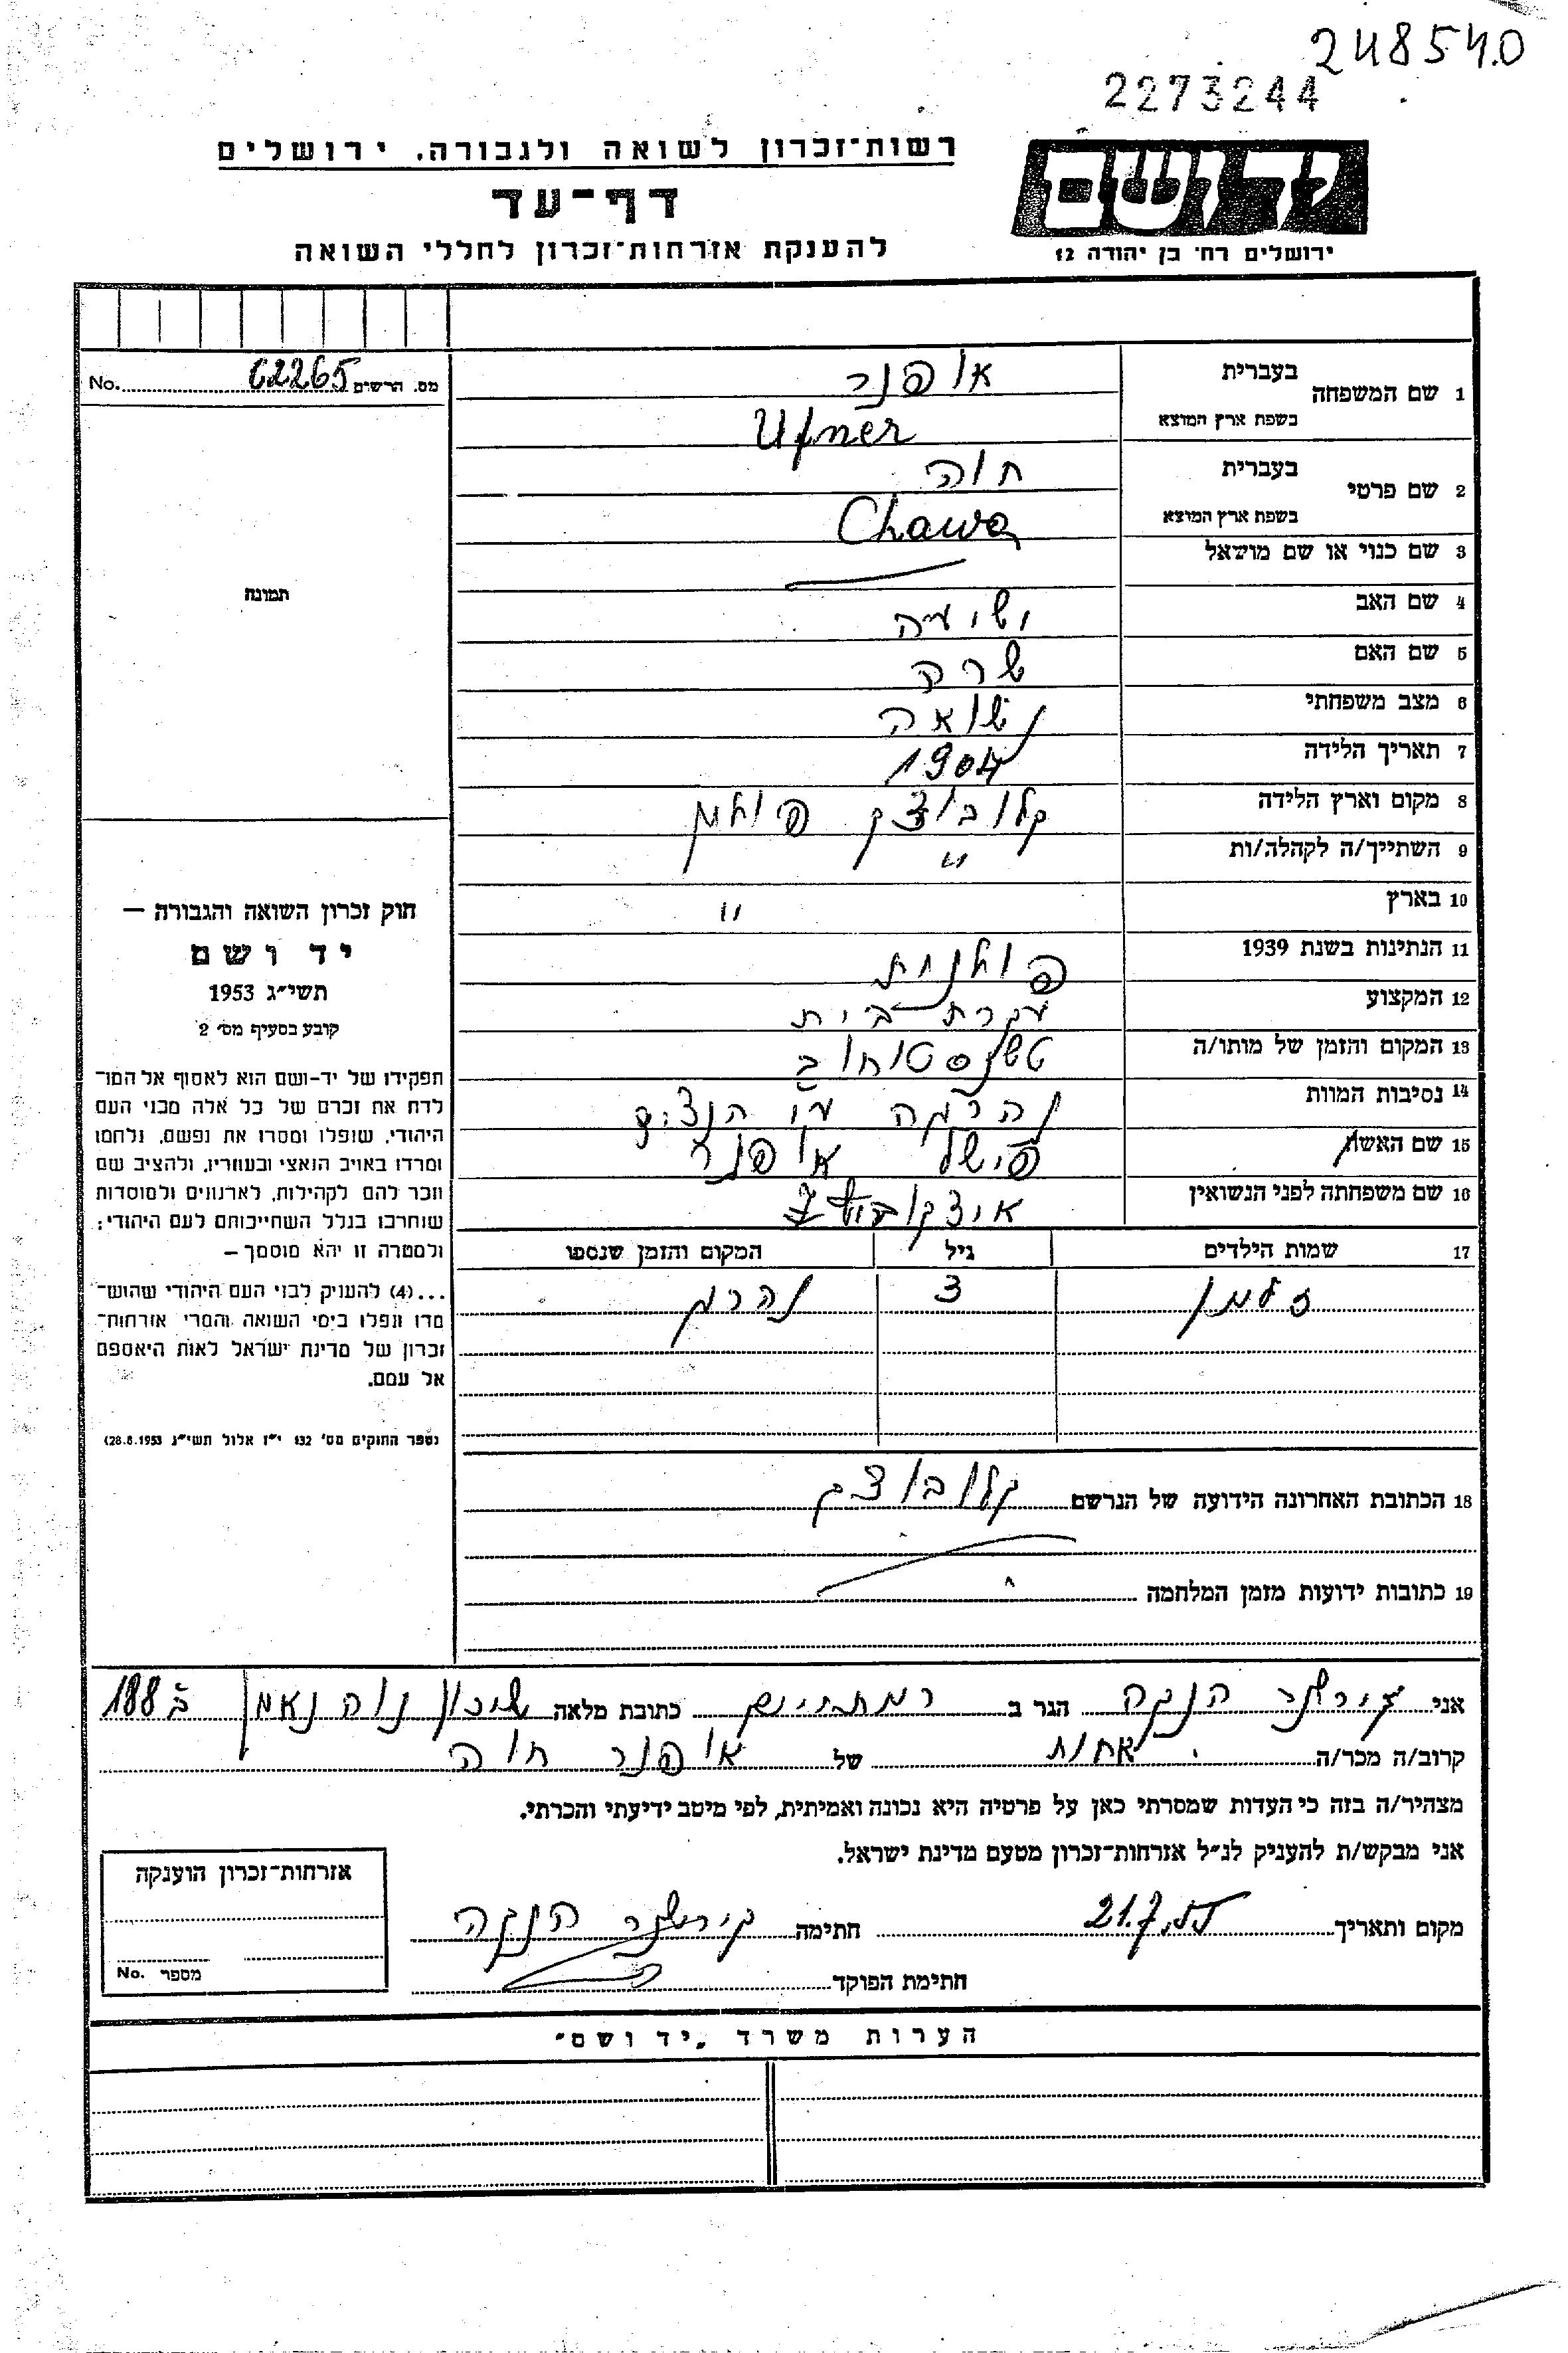 248540
2273244
רשות־זכרון לשואה ולגבורה, ירושלים
דף-עד
להענקת אזרחות־זכרון לחללי השואה
ידושם
ירושלים רח׳ בן יהודה 12
מס. הרשום 62265 No.
1 שם המשפחה
בעברית אופנר
בשפת ארץ המוצא Ufner
2 שם פרטי
בעברית חוה
בשפת ארץ המוצא Chawa
3 שם כנוי או שם מושאל
4 שם האב ישעיה
5 שם האם שרה
6 מצב משפחתי נשואה
7 תאריך הלידה 1904
8 מקום וארץ הלידה קלובוצק פולין
9 השתייך/ה לקהלה/ות "
10 בארץ "
11 הנתינות בשנת 1939 פולנית
12 המקצוע עקרת בית
13 המקום והזמן של מותו/ה טשנסטוחוב
14 נסיבות המוות נהרגה ע״י הנצים
15 שם האשה פישל אופנר
16 שם משפחתה לפני הנשואין איצקוביץ
17 שמות הילדים גיל המקום והזמן שנספו
זלמן 3 נהרג
18 הכתובת האחרונה הידועה של הנרשם קלובוצק
19 כתובות ידועות מזמן המלחמה
תמונה
חוק זכרון השואה והגבורה —
יד ושם
תשי״ג 1953
קובע בסעיף מס׳ 2
תפקידו של יד-ושם הוא לאסוף אל המו־
לדת את זכרם של כל אלה מבני העם
היהודי, שנפלו ומסרו את נפשם, נלחמו
ומרדו באויב הנאצי ובעוזריו, ולהציב שם
וזכר להם לקהילות, לארגונים ולמוסדות
שוחרבו בגלל השתייכותם לעם היהודי;
ולמטרה זו יהא מוסמך —
...(4) להעניק לבני העם היהודי שהוש־
מדו ונפלו בימי השואה והמרי אזרחות־
זכרון של מדינת ישראל לאות היאספם
אל עמם.
(ספר החוקים מס׳ 132 י״ז אלול תשי״ג 28.8.1953)
אני קירשנר הנקה הגר ב כתובת מלאה שיכון נוה נאמן ב 188
קרוב/ה מכר/ה אחות של אופנר חוה
מצהיר/ה בזה כי העדות שמסרתי כאן על פרטיה היא נכונה ואמיתית, לפי מיטב ידיעתי והכרתי.
אני מבקש/ת להעניק לנ״ל אזרחות־זכרון מטעם מדינת ישראל.
מקום ותאריך 21.7.55 חתימה קירשנר הנקה
חתימת הפוקד
אזרחות־זכרון הוענקה
מספר No.
הערות משרד „יד ושם״